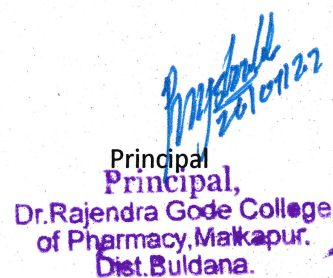 20/07/22
Principal
Principal,
Dr.Rajendra Gode College
of Pharmacy,Malkapur.
Dist.Buldana.